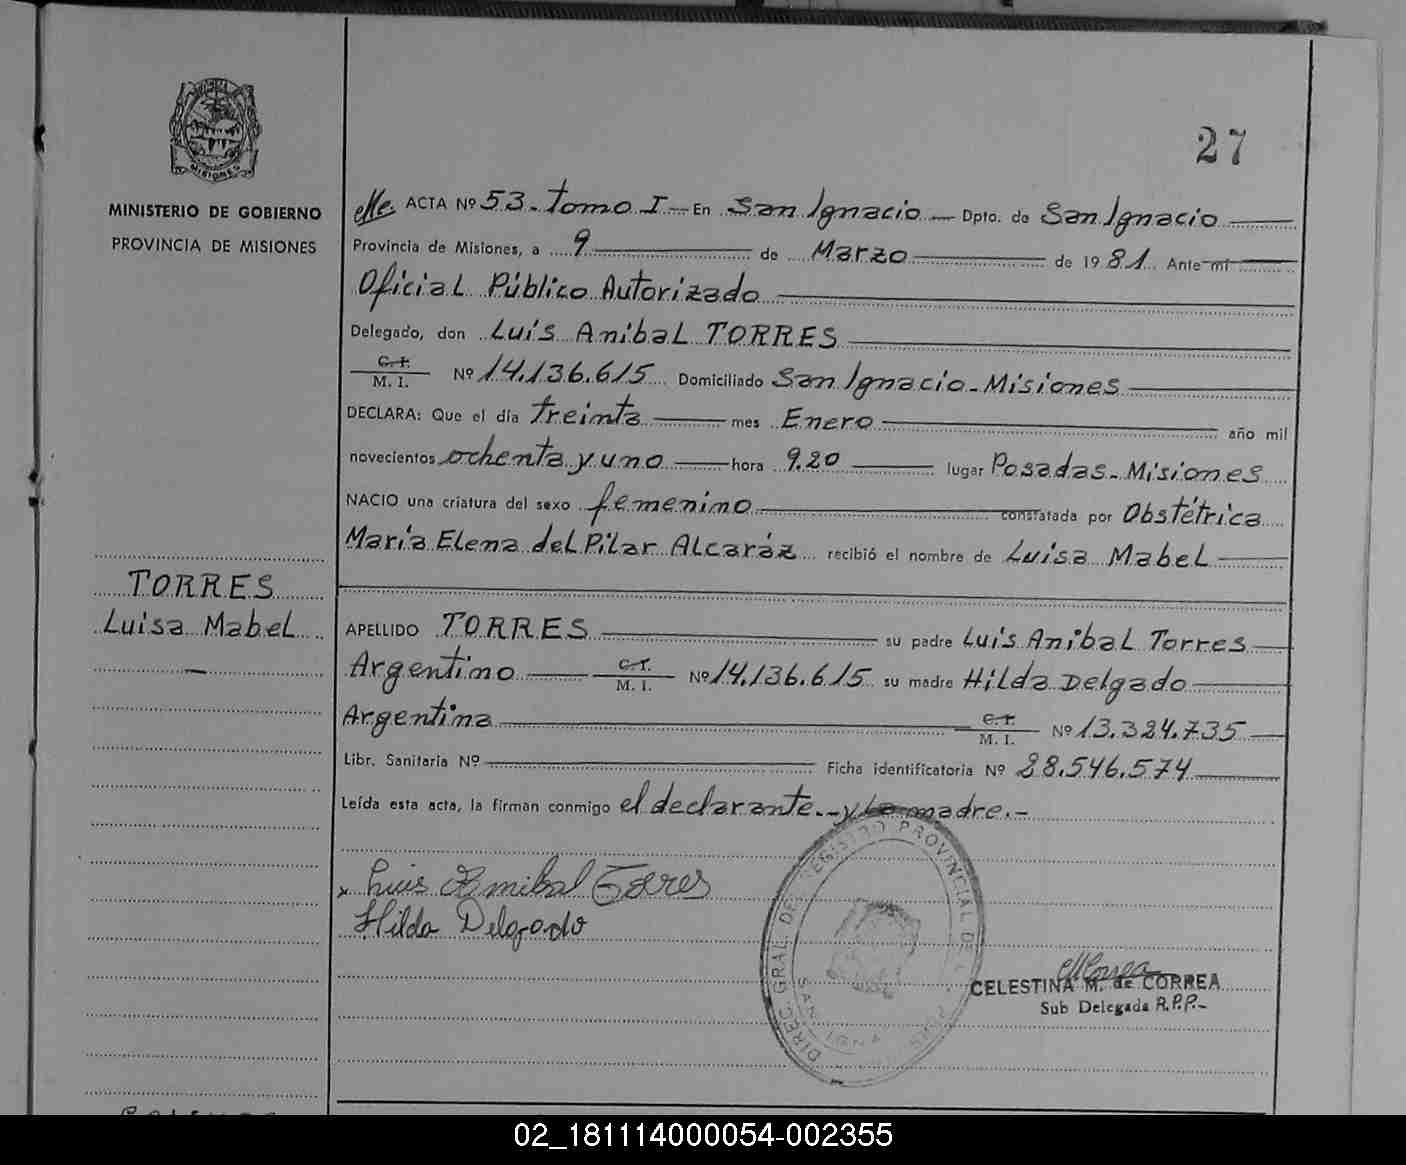 27
MISIONES
MINISTERIO DE GOBIERNO
PROVINCIA DE MISIONES
TORRES
Luisa Mabel
ACTA Nº 53. tomo I — En San Ignacio — Dpto. de San Ignacio
Provincia de Misiones, a 9 de Marzo de 1981. Ante mí
Oficial Público Autorizado
Delegado, don Luis Anibal TORRES
C. I.
M. I. Nº 14.136.615 Domiciliado San Ignacio - Misiones
DECLARA: Que el día treinta mes Enero año mil
novecientos ochenta y uno hora 9.20 lugar Posadas - Misiones
NACIO una criatura del sexo femenino constatada por Obstétrica
María Elena del Pilar Alcaráz recibió el nombre de Luisa Mabel
APELLIDO TORRES su padre Luis Anibal Torres
Argentino C. I. M. I. Nº 14.136.615 su madre Hilda Delgado
Argentina C. I. M. I. Nº 13.324.735
Libr. Sanitaria Nº Ficha identificatoria Nº 28.546.574
Leída esta acta, la firman conmigo el declarante. - y la madre. -
Luis Anibal Torres
Hilda Delgado
DIREC. GRAL. DEL REGISTRO PROVINCIAL DE
SAN IGNA
CELESTINA M. de CORREA
Sub Delegada R.P.P. -
02_181114000054-002355